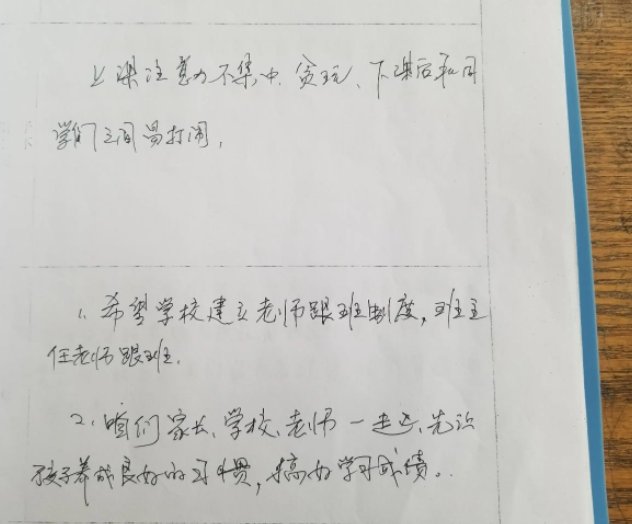 上课注意力不集中、贪玩、下课后和同
学们之间易打闹,
1. 希望学校建立老师跟班制度,班主
任老师跟班.
2. 咱们家长、学校、老师一起、先让
孩子养成良好的习惯,搞好学习成绩。